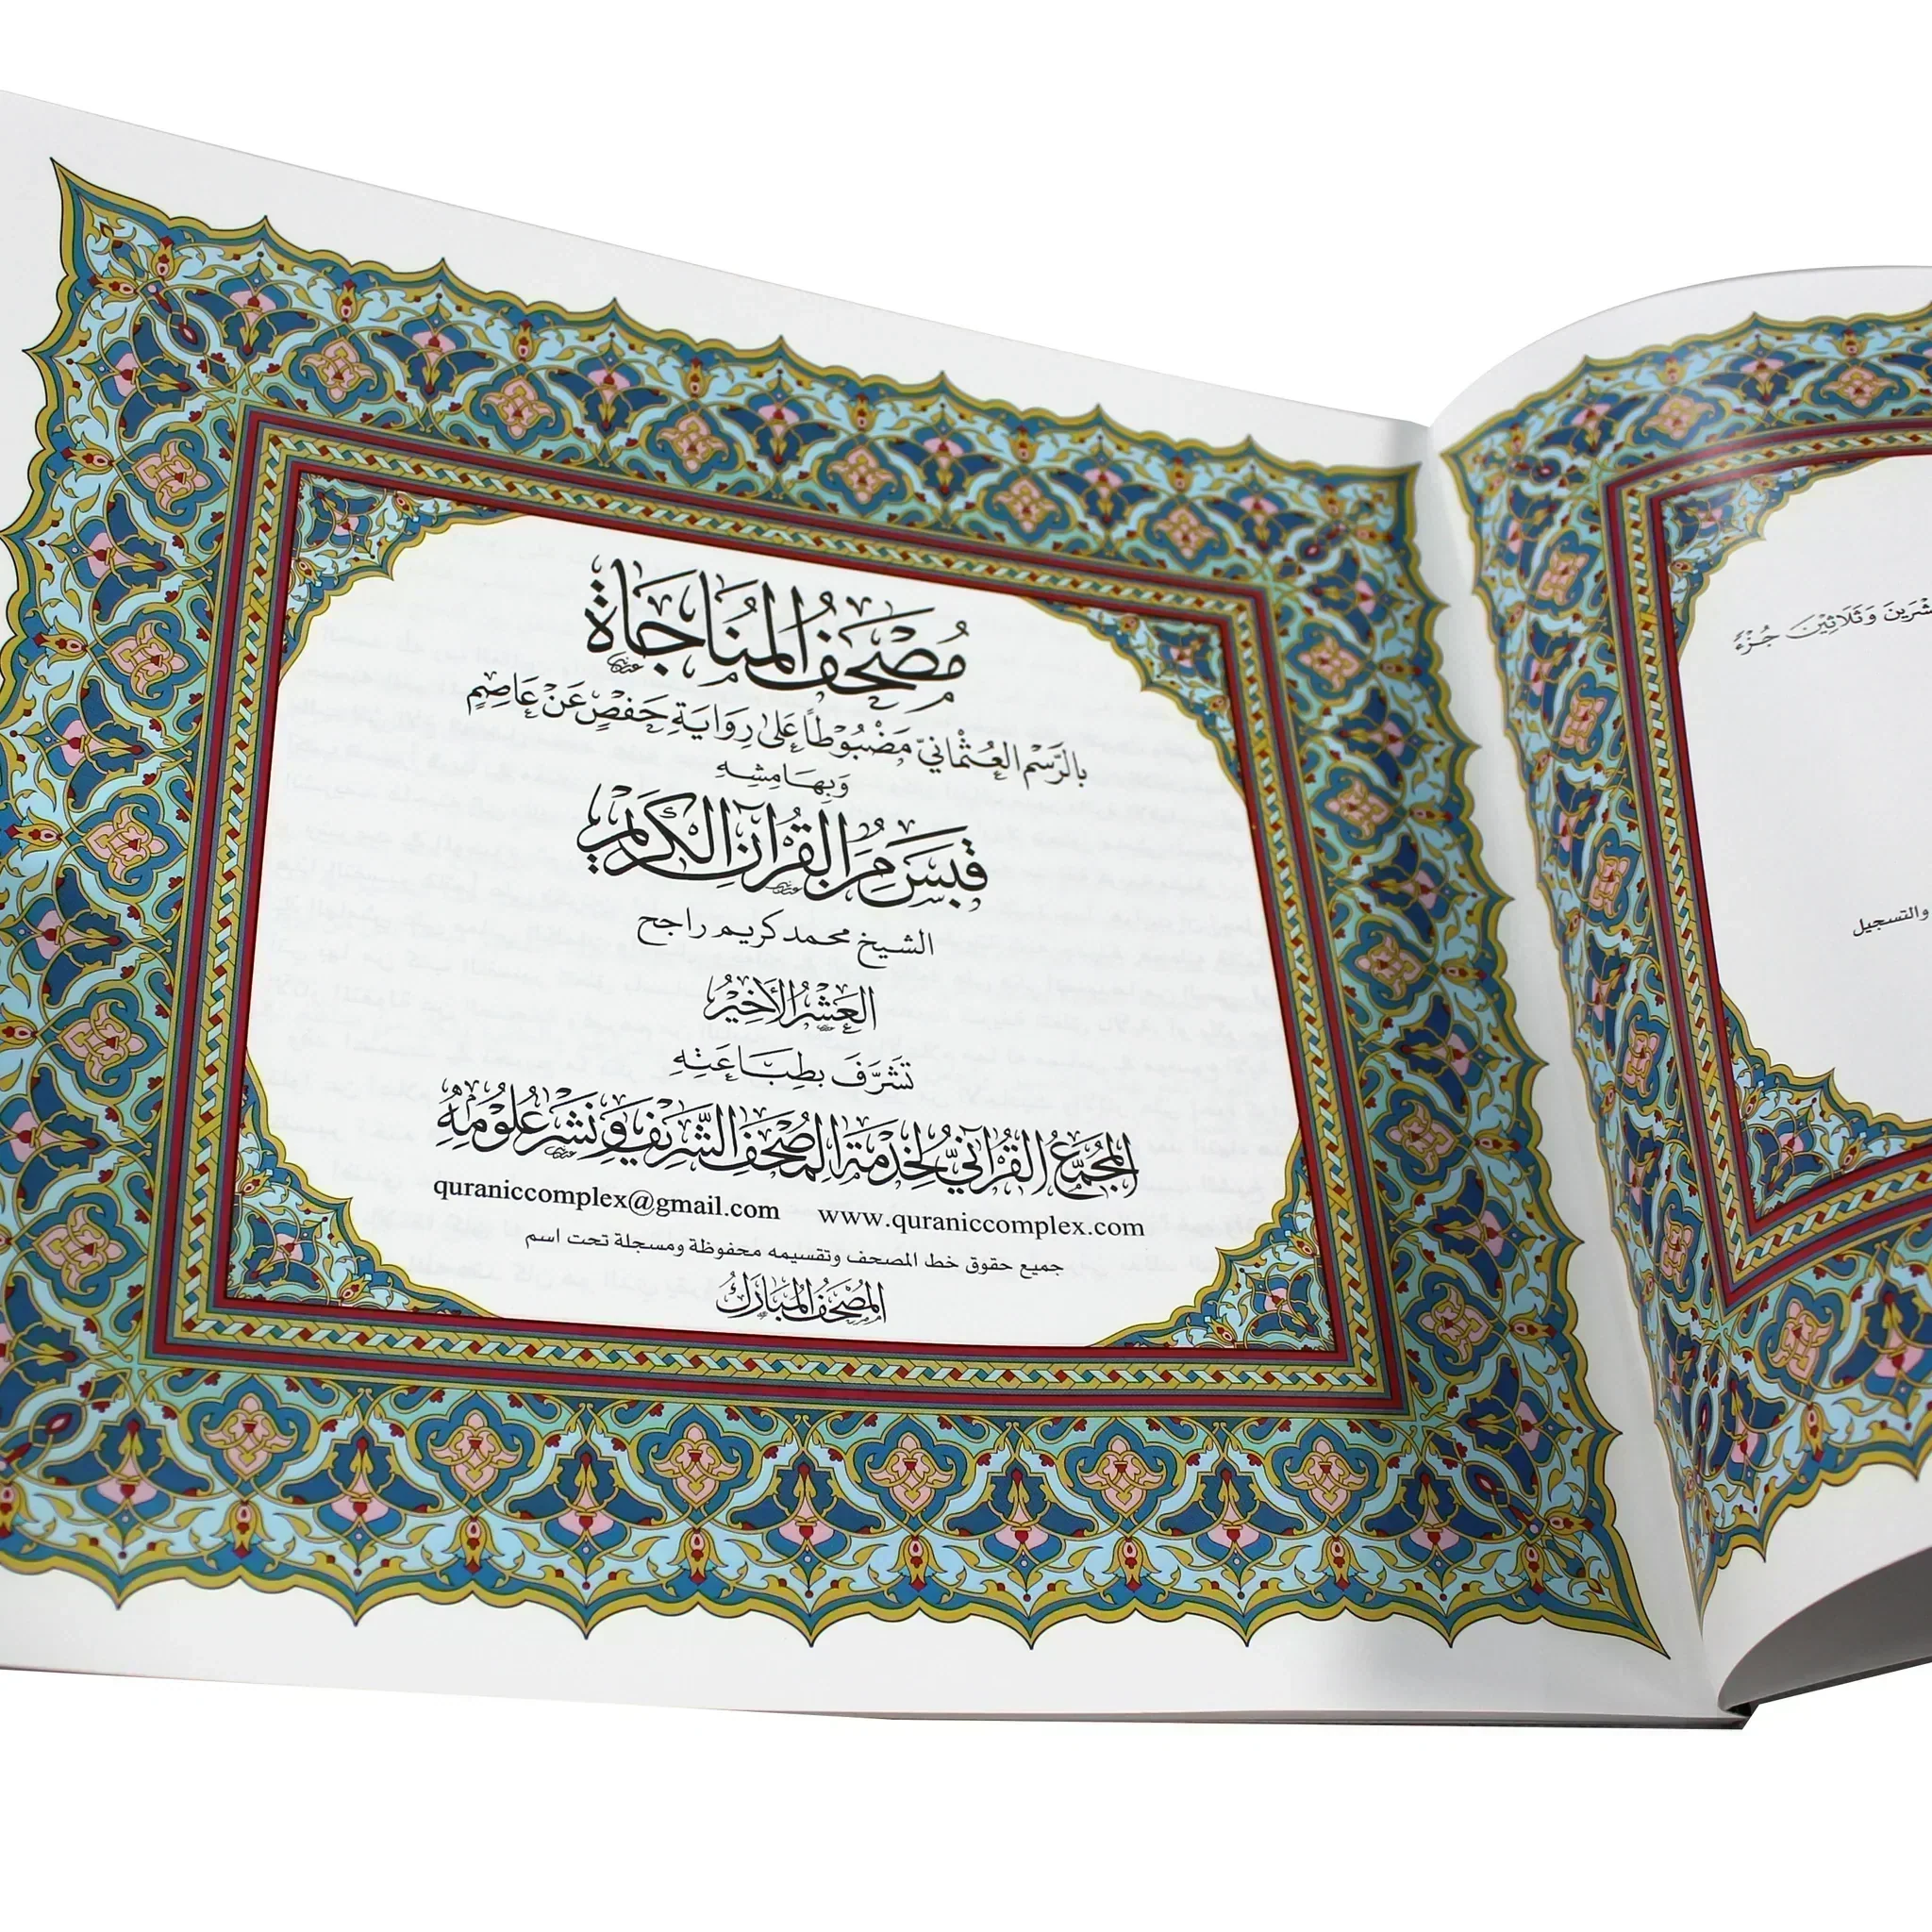 مُصْحَفُ المُنَاجَاة
بِالرَّسْمِ العُثْمَانِيّ مَضْبُوطًا عَلَى رِوَايَةِ حَفْصٍ عَنْ عَاصِمٍ
وَبِهَامِشِهِ
قَبَسٌ مِنَ القُرْآنِ الكَرِيمِ
الشيخ محمد كريم راجح
العَشْرُ الأَخِيرُ
تَشَرَّفَ بِطِبَاعَتِهِ
المُجَمَّعُ القُرْآنِيُّ لِخِدْمَةِ المُصْحَفِ الشَّرِيفِ وَنَشْرِ عُلُومِهِ
quraniccomplex@gmail.com www.quraniccomplex.com
جميع حقوق خط المصحف وتقسيمه محفوظة ومسجلة تحت اسم
المُصْحَفُ المُبَارَكُ
وَثَلَاثِينَ جُزْءً
والتسجيل